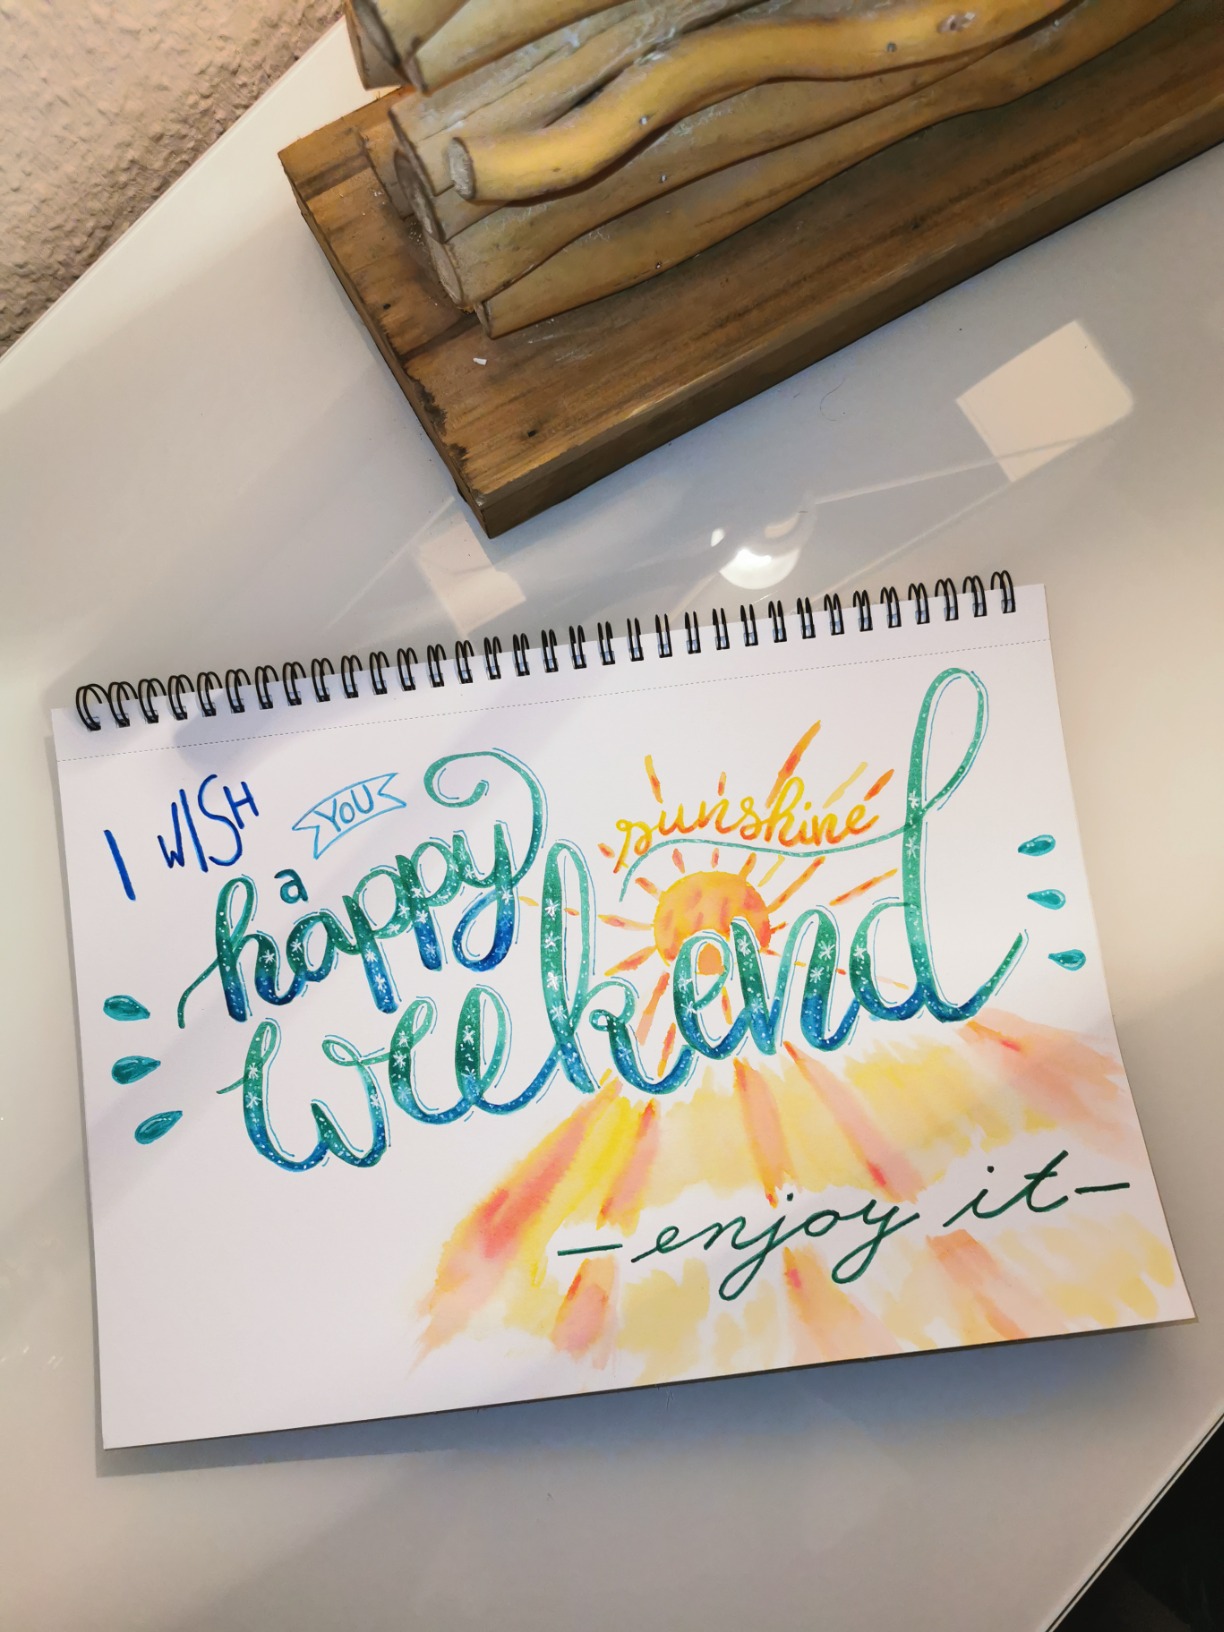 I WISH YOU
a
happy
sunshine
weekend
-enjoy it-